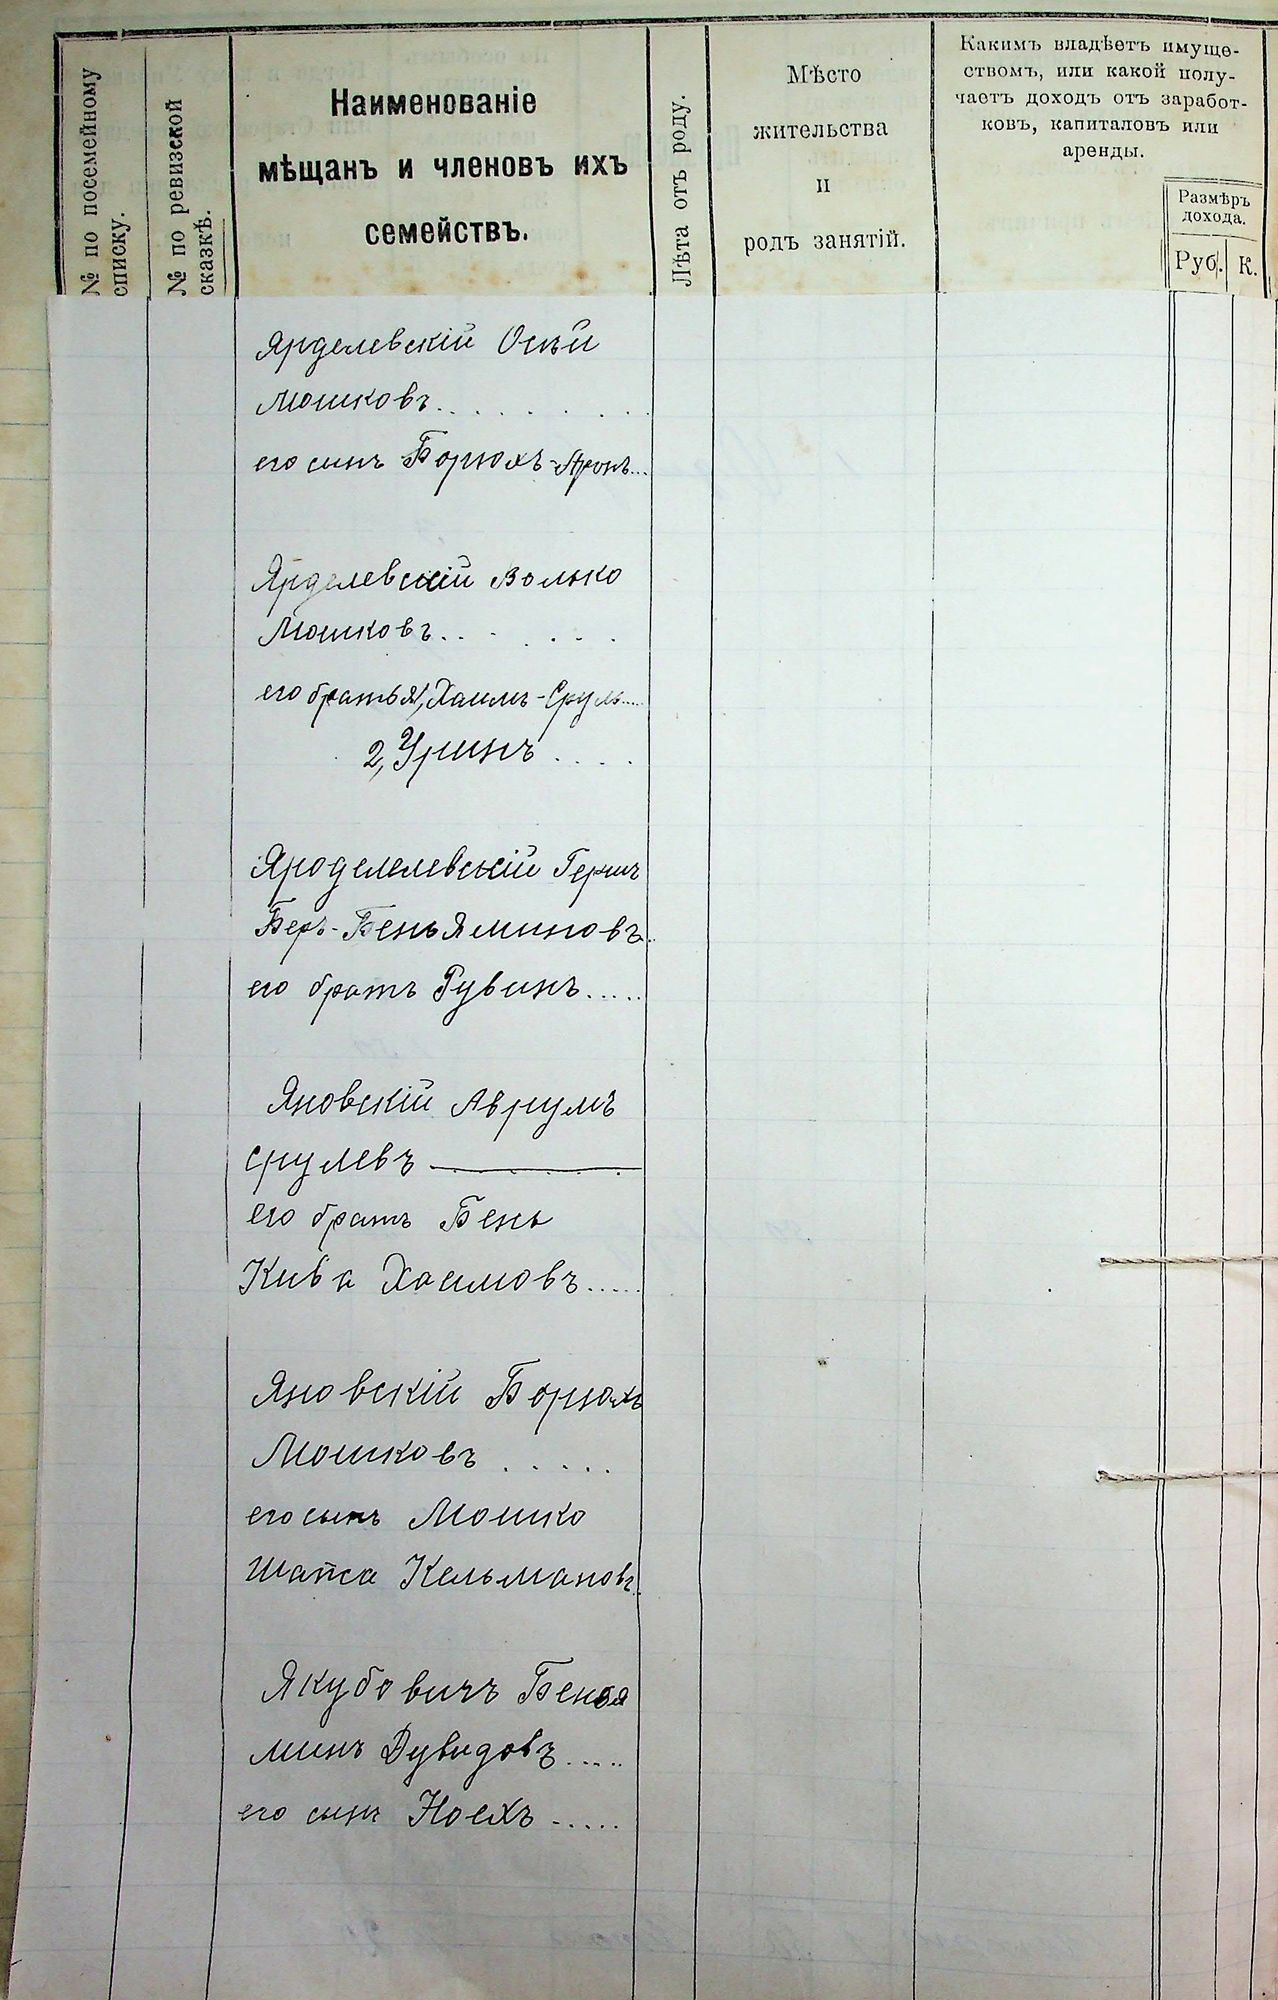 № по посемейному
списку.
№ по ревизской
сказкѣ.
Наименованіе
мѣщанъ и членовъ ихъ
семействъ.
Лѣта отъ роду.
Мѣсто
жительства
и
родъ занятій.
Какимъ владѣетъ имуще-
ствомъ, или какой полу-
чаетъ доходъ отъ заработ-
ковъ, капиталовъ или
аренды.
Размѣръ
дохода.
Руб. К.
Ярделевскій Осьй
Мошковъ.........
его сынъ Борюхъ-Аронъ...
Ярделевскій Волько
Мошковъ......
его братья 1, Хаимъ-Сруль.....
2, Уринъ....
Яроделелевскій Гершъ
Беръ-Беньяминовъ..
его братъ Рувинъ.....
Яновскій Аврумъ
Срулевъ
его братъ Бень
Кива Хаимовъ.....
Яновскій Борюхъ
Мошковъ.....
его сынъ Мошко
Шапса Кельмановъ.
Якубовичъ Бенья
минъ Дувидовъ.....
его сынъ Ноехъ.....